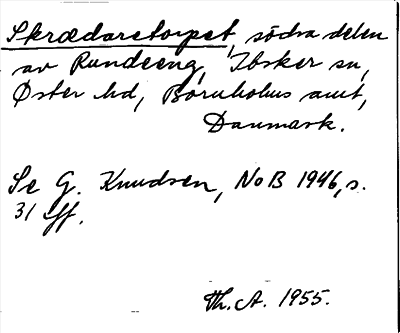 Skrædaretorpet, södra delen
av Rundeeng, Ibsker sn,
Øster hd, Bornholms amt,
Danmark.
Se G. Knudsen, NoB 1946, s.
31 ff.
Th. A. 1955.